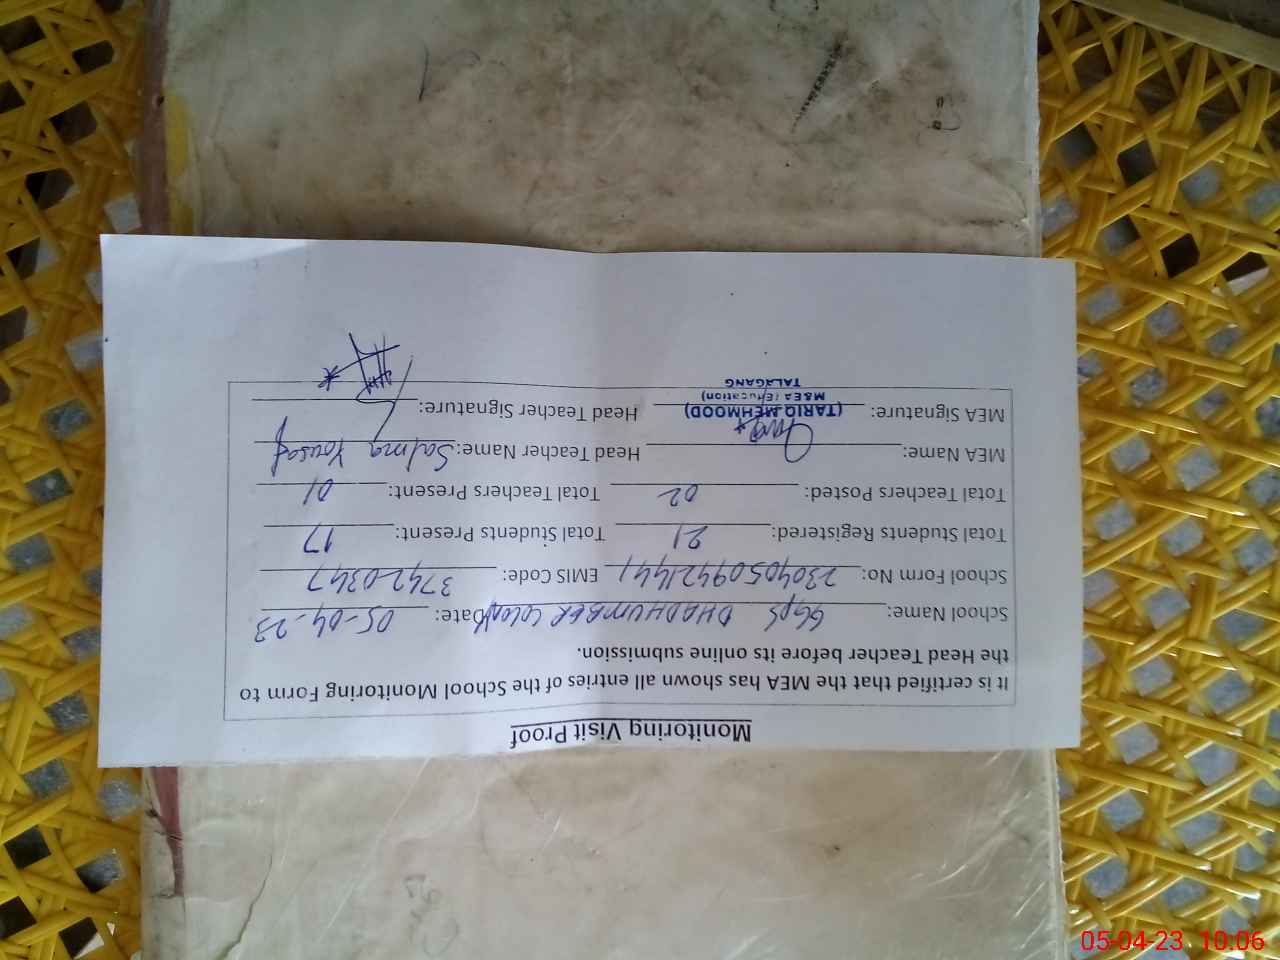 Monitoring Visit Proof
It is certified that the MEA has shown all entries of the School Monitoring Form to
the Head Teacher before its online submission.
School Name: GGPS DHADHUMBER COLONY Date: 05-04-23
School Form No: 230405094214441 EMIS Code: 37420347
Total Students Registered: 21 Total Students Present: 17
Total Teachers Posted: 02 Total Teachers Present: 01
MEA Name: Head Teacher Name: Salma Yousaf
MEA Signature: (TARIQ MEHMOOD) Head Teacher Signature:
M&EA (Education)
TALAGANG
05-04-23 10:06